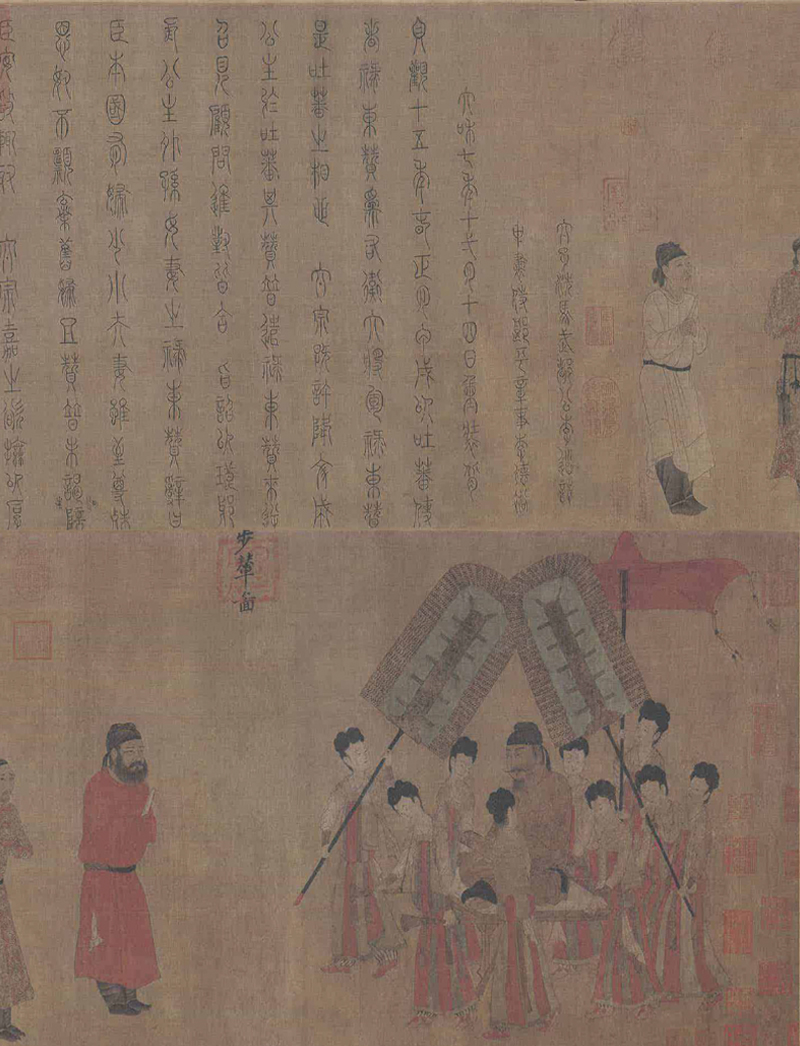 太子洗馬武都公李道誌
中書侍郎平章事李德裕
大和七年十一月十四日重裝背
貞觀十五年春正月甲戌以吐蕃使
者祿東贊爲右衛大將軍祿東贊
是吐蕃之相也 太宗既許降文成
公主於吐蕃其贊普遣祿東贊來逆
召見顧問進對皆合 旨詔以琅耶
長公主外孫女妻之祿東贊辭曰
臣本國有婦少小夫妻雖至尊殊
恩奴不願棄舊婦且贊普未謁陛
臣安敢輒取 太宗嘉之欲撫以厚
步輦圖